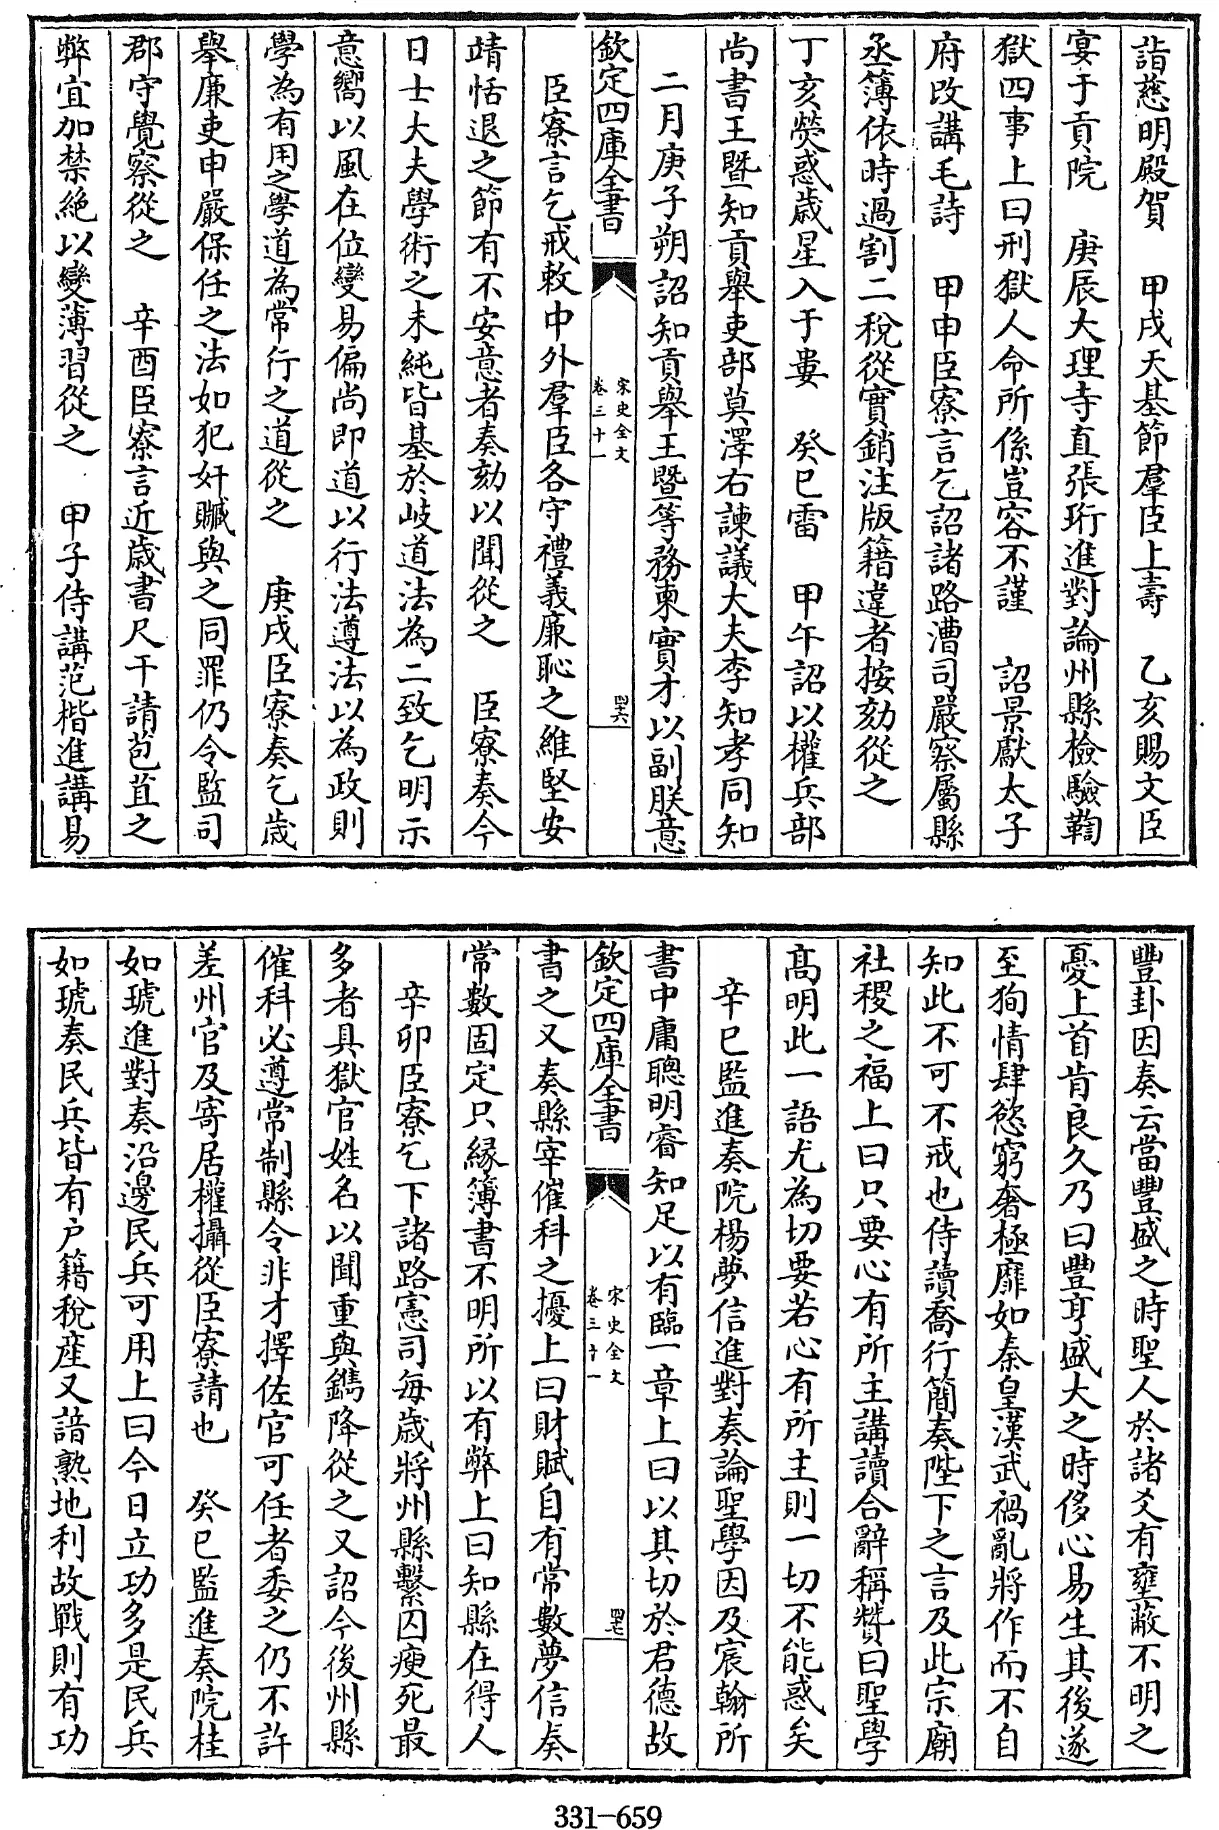 詣慈明殿賀　甲戌天基節羣臣上壽　乙亥賜文臣
宴于貢院　庚辰大理寺直張珩進對論州縣檢驗鞫
獄四事上曰刑獄人命所係豈容不謹　詔景獻太子
府改講毛詩　甲申臣寮言乞詔諸路漕司嚴察屬縣
丞簿依時過割二稅從實銷注版籍違者按劾從之
丁亥熒惑歲星入于婁　癸巳雷　甲午詔以權兵部
尚書王暨知貢舉吏部莫澤右諫議大夫李知孝同知
二月庚子朔詔知貢舉王暨等務東實才以副朕意
欽定四庫全書
宋史全文
卷三十一
四六
臣寮言乞戒敕中外羣臣各守禮義廉恥之維堅安
靖恬退之節有不安意者奏劾以聞從之　臣寮奏今
日士大夫學術之未純皆基於岐道法為二致乞明示
意嚮以風在位變易偏尚即道以行法遵法以為政則
學為有用之學道為常行之道從之　庚戌臣寮奏乞歲
舉廉吏申嚴保任之法如犯奸贓與之同罪仍令監司
郡守覺察從之　辛酉臣寮言近歲書尺干請苞苴之
弊宜加禁絶以變薄習從之　甲子侍講范楷進講易
豐卦因奏云當豐盛之時聖人於諸爻有壅蔽不明之
憂上首肯良久乃曰豐亨盛大之時侈心易生其後遂
至狥情肆慾窮奢極靡如秦皇漢武禍亂將作而不自
知此不可不戒也侍讀喬行簡奏陛下之言及此宗廟
社稷之福上曰只要心有所主講讀合辭稱贊曰聖學
髙明此一語尤為切要若心有所主則一切不能惑矣
辛巳監進奏院楊夢信進對奏論聖學因及宸翰所
書中庸聰明睿知足以有臨一章上曰以其切於君德故
欽定四庫全書
宋史全文
卷三十一
四七
書之又奏縣宰催科之擾上曰財賦自有常數夢信奏
常數固定只緣簿書不明所以有弊上曰知縣在得人
辛卯臣寮乞下諸路憲司每歲將州縣繫囚瘐死最
多者具獄官姓名以聞重與鐫降從之又詔今後州縣
催科必遵常制縣令非才擇佐官可任者委之仍不許
差州官及寄居權攝從臣寮請也　癸巳監進奏院桂
如琥進對奏沿邊民兵可用上曰今日立功多是民兵
如琥奏民兵皆有户籍稅產又諳熟地利故戰則有功
331-659